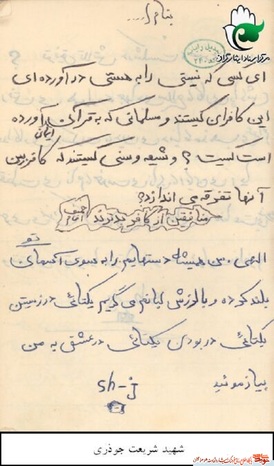 بنام ا....
مرکز اسناد ایثارگران
ای کسی که نیستی را به هستی در آورده ای
این کافران کیستند و مسلمانی که به قرآن ایمان آورده
است کیست؟ و شیعه و سنی کیستند که کافر بین
آنها تفرقه می اندازد؟
منافقین از کافر بدترند امام خمینی
الهی من همیشه دستهایم را به سوی آسمانهای تو
بلند کرده و با لرزش لبانم می گویم یکتائی در زیستن
یکتائی در بودن یکتائی در عشق به من
بیاموزید
sh-j
شهید شریعت جوذری